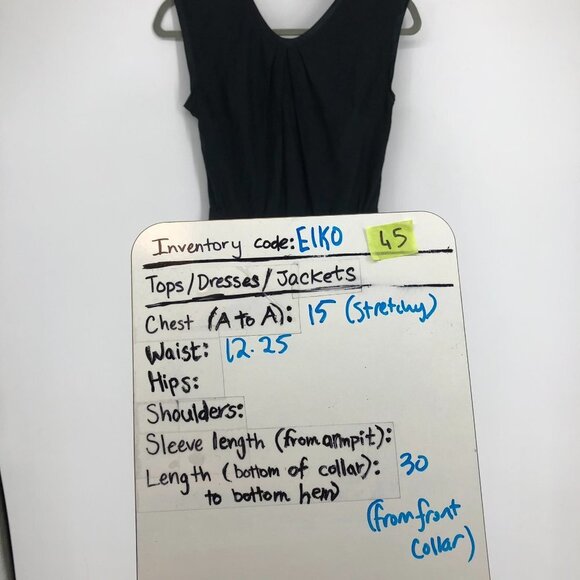 Inventory code: EIKO 45
Tops/Dresses/Jackets
Chest (A to A): 15 (Stretchy)
Waist: 12.25
Hips:
Shoulders:
Sleeve length (from armpit):
Length (bottom of collar): 30
to bottom hem)
(from front
collar)